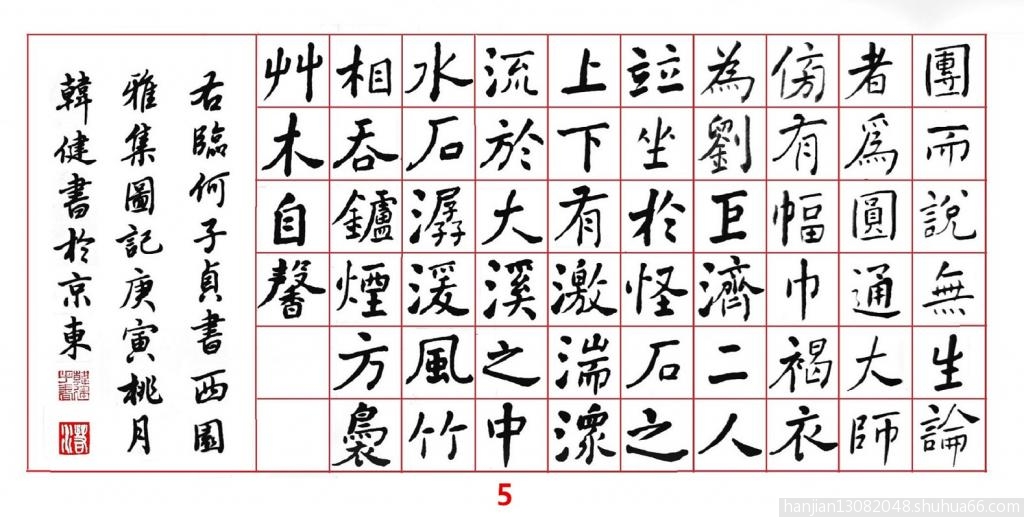 團而說無生論
者爲圓通大師
傍有幅巾褐衣
為劉巨濟二人
竝坐於怪石之
上下有激湍潨
流於大溪之中
水石潺湲風竹
相吞鑪煙方裊
艸木自馨
右臨何子貞書西園
雅集圖記庚寅桃月
韓健書於京東
5
hanjian13082048.shuhua66.com